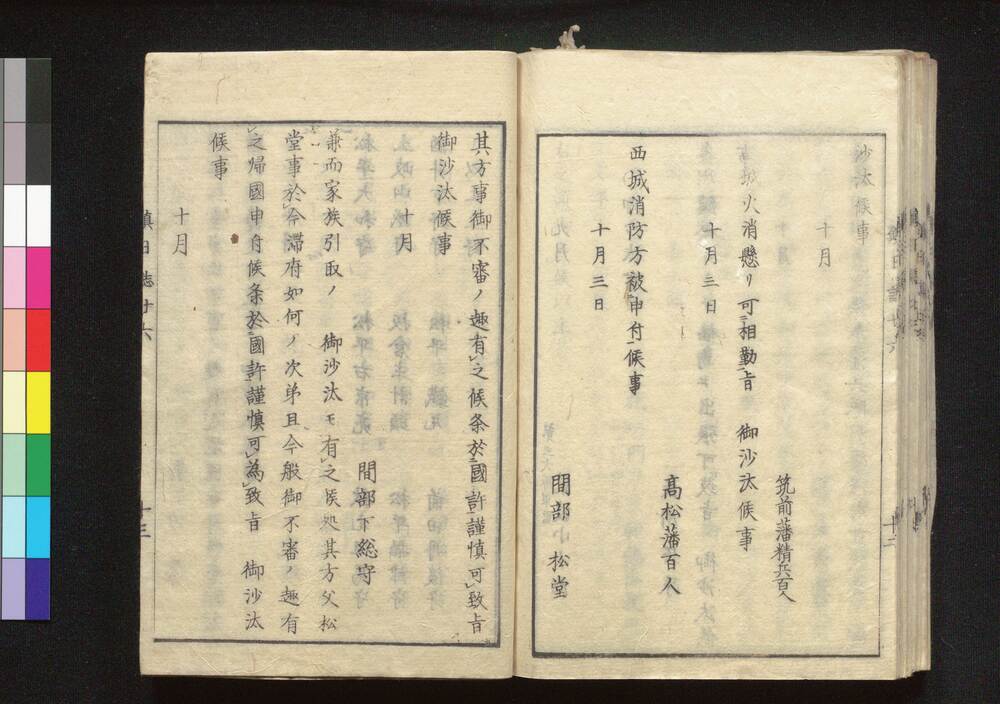 沙汰候事
十月
筑前藩精兵百人
西城火消懸リ可相勤旨　御沙汰候事
十月三日
高松藩百人
西城消防方被申付候事
十月三日
間部小松堂
其方事御不審ノ趣有之候条於国許謹慎可致旨
御沙汰候事
十月
間部下総守
兼而家族引取ノ　御沙汰モ有之候処其方父松
堂事於今滞府如何ノ次第且今般御不審ノ趣有
之帰國申付候条於國許謹慎可為致旨　御沙汰
候事
十月
鎮日誌廿六
十三